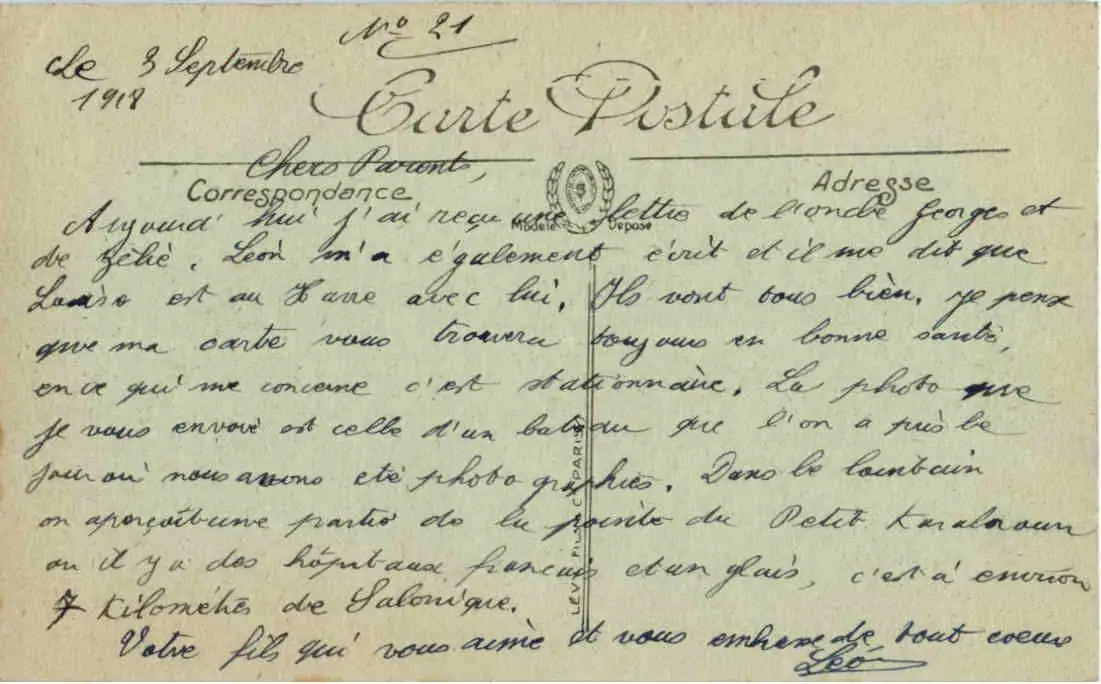 Nº 21
Le 3 Septembre
1918
Carte Postale
Chers Parents,
Correspondance
Adresse
Aujourd'hui j'ai reçu une lettre de l'oncle Georges et
Modèle Déposé
de Zélie. Léon m'a également écrit et il me dit que
Louise est au Havre avec lui. Ils vont tous bien. je pense
que ma carte vous trouvera toujours en bonne santé,
en ce qui me concerne c'est stationnaire. La photo que
je vous envoie est celle d'un bateau que l'on a pris le
jour où nous avons été photographiés. Dans le lointain
on aperçoit une partie de la pointe du Petit Karabouroun
ou il y a des hôpitaux français et anglais, c'est à environ
7 Kilomètres de Salonique.
Votre fils qui vous aime et vous embrasse de tout coeur
Léon
LÉVY FILS & Cie PARIS